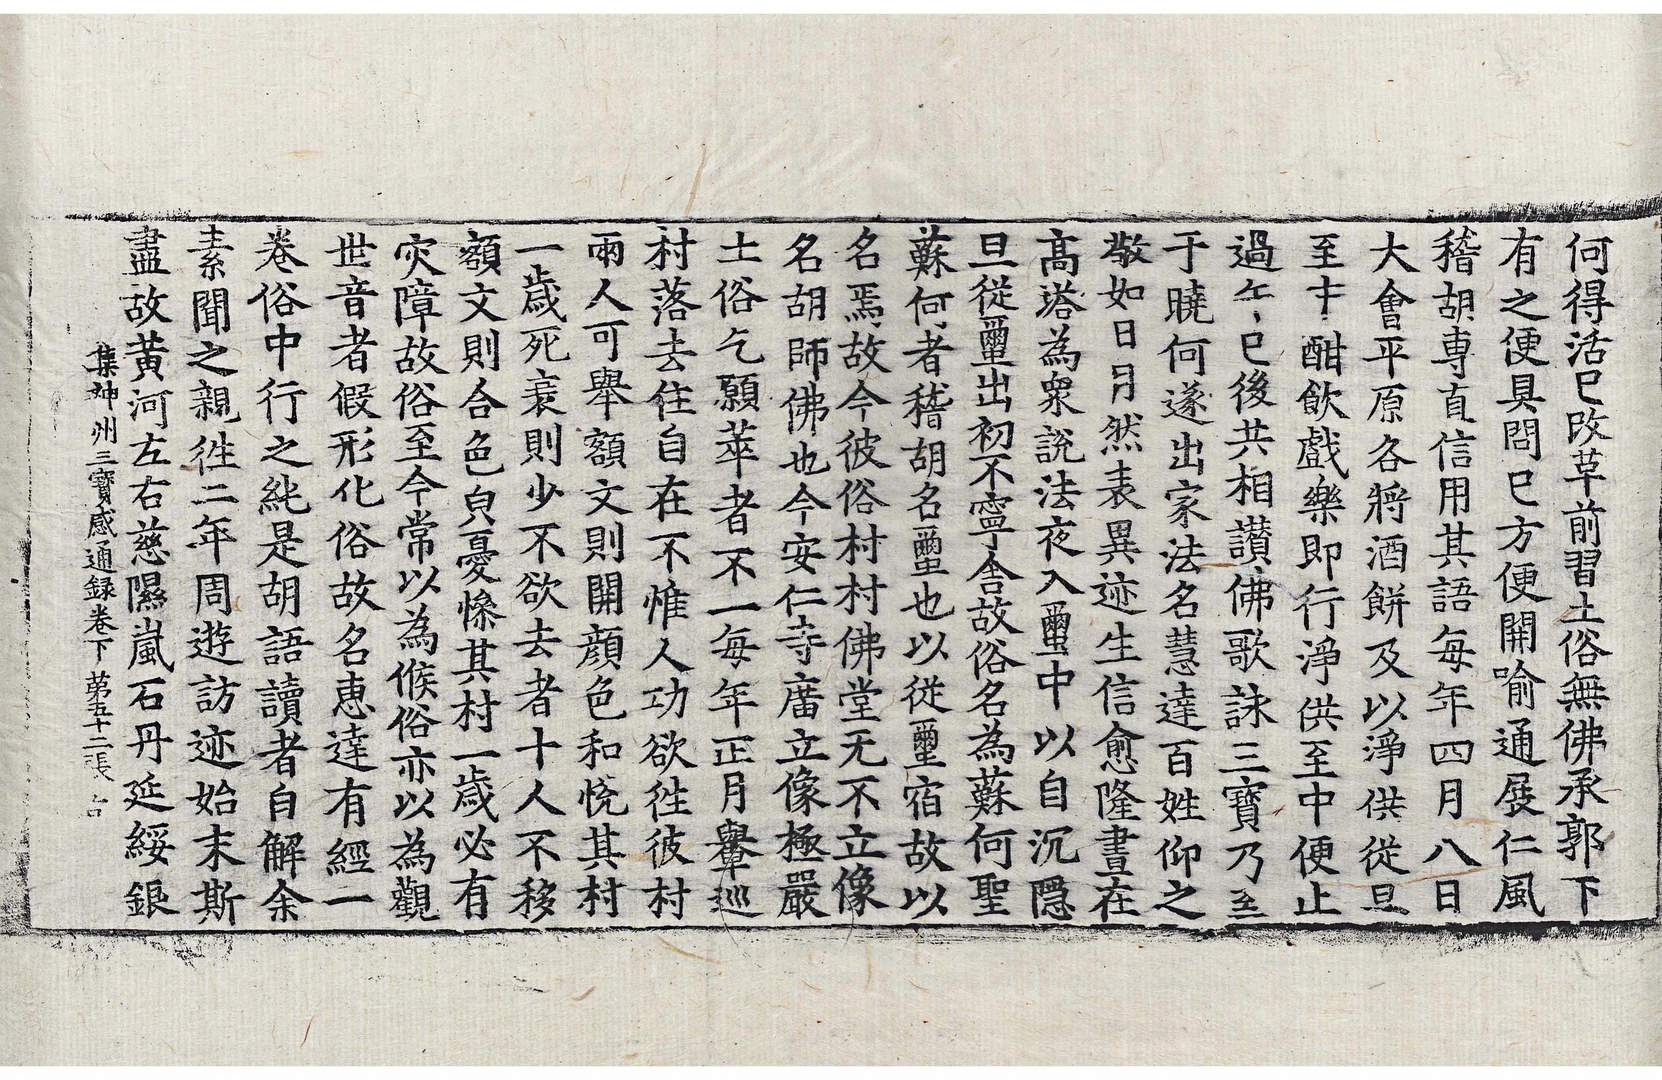 何得活已改革前習土俗無佛承郭下
有之便具問已方便開喻通展仁風
稽胡専直信用其語每年四月八日
大會平原各將酒餅及以淨供從旦
至中酣飲戲樂即行淨供至中便止
過午已後共相讃佛歌詠三寶乃至
于曉何遂出家法名慧達百姓仰之
敬如日月然表異迹生信愈隆晝在
髙塔為衆說法夜入璽中以自沉隠
旦從璽出初不寧舎故俗名為蘇何聖
蘇何者稽胡名璽也以從璽宿故以
名焉故今彼俗村村佛堂无不立像
名胡師佛也今安仁寺廣立像極嚴
土俗乞願萃者不一每年正月轝巡
村落去住自在不惟人功欲徃彼村
兩人可舉額文則開顔色和悅其村
一歲死衰則少不欲去者十人不移
額文則合色皃憂慘其村一歲必有
灾障故俗至今常以為候俗亦以為觀
世音者假形化俗故名惠達有經一
卷俗中行之純是胡語讀者自解余
素聞之親徃二年周遊訪迹始末斯
盡故黃河左右慈隰嵐石丹延綏銀
集神州三寶感通録卷下 第五十二張